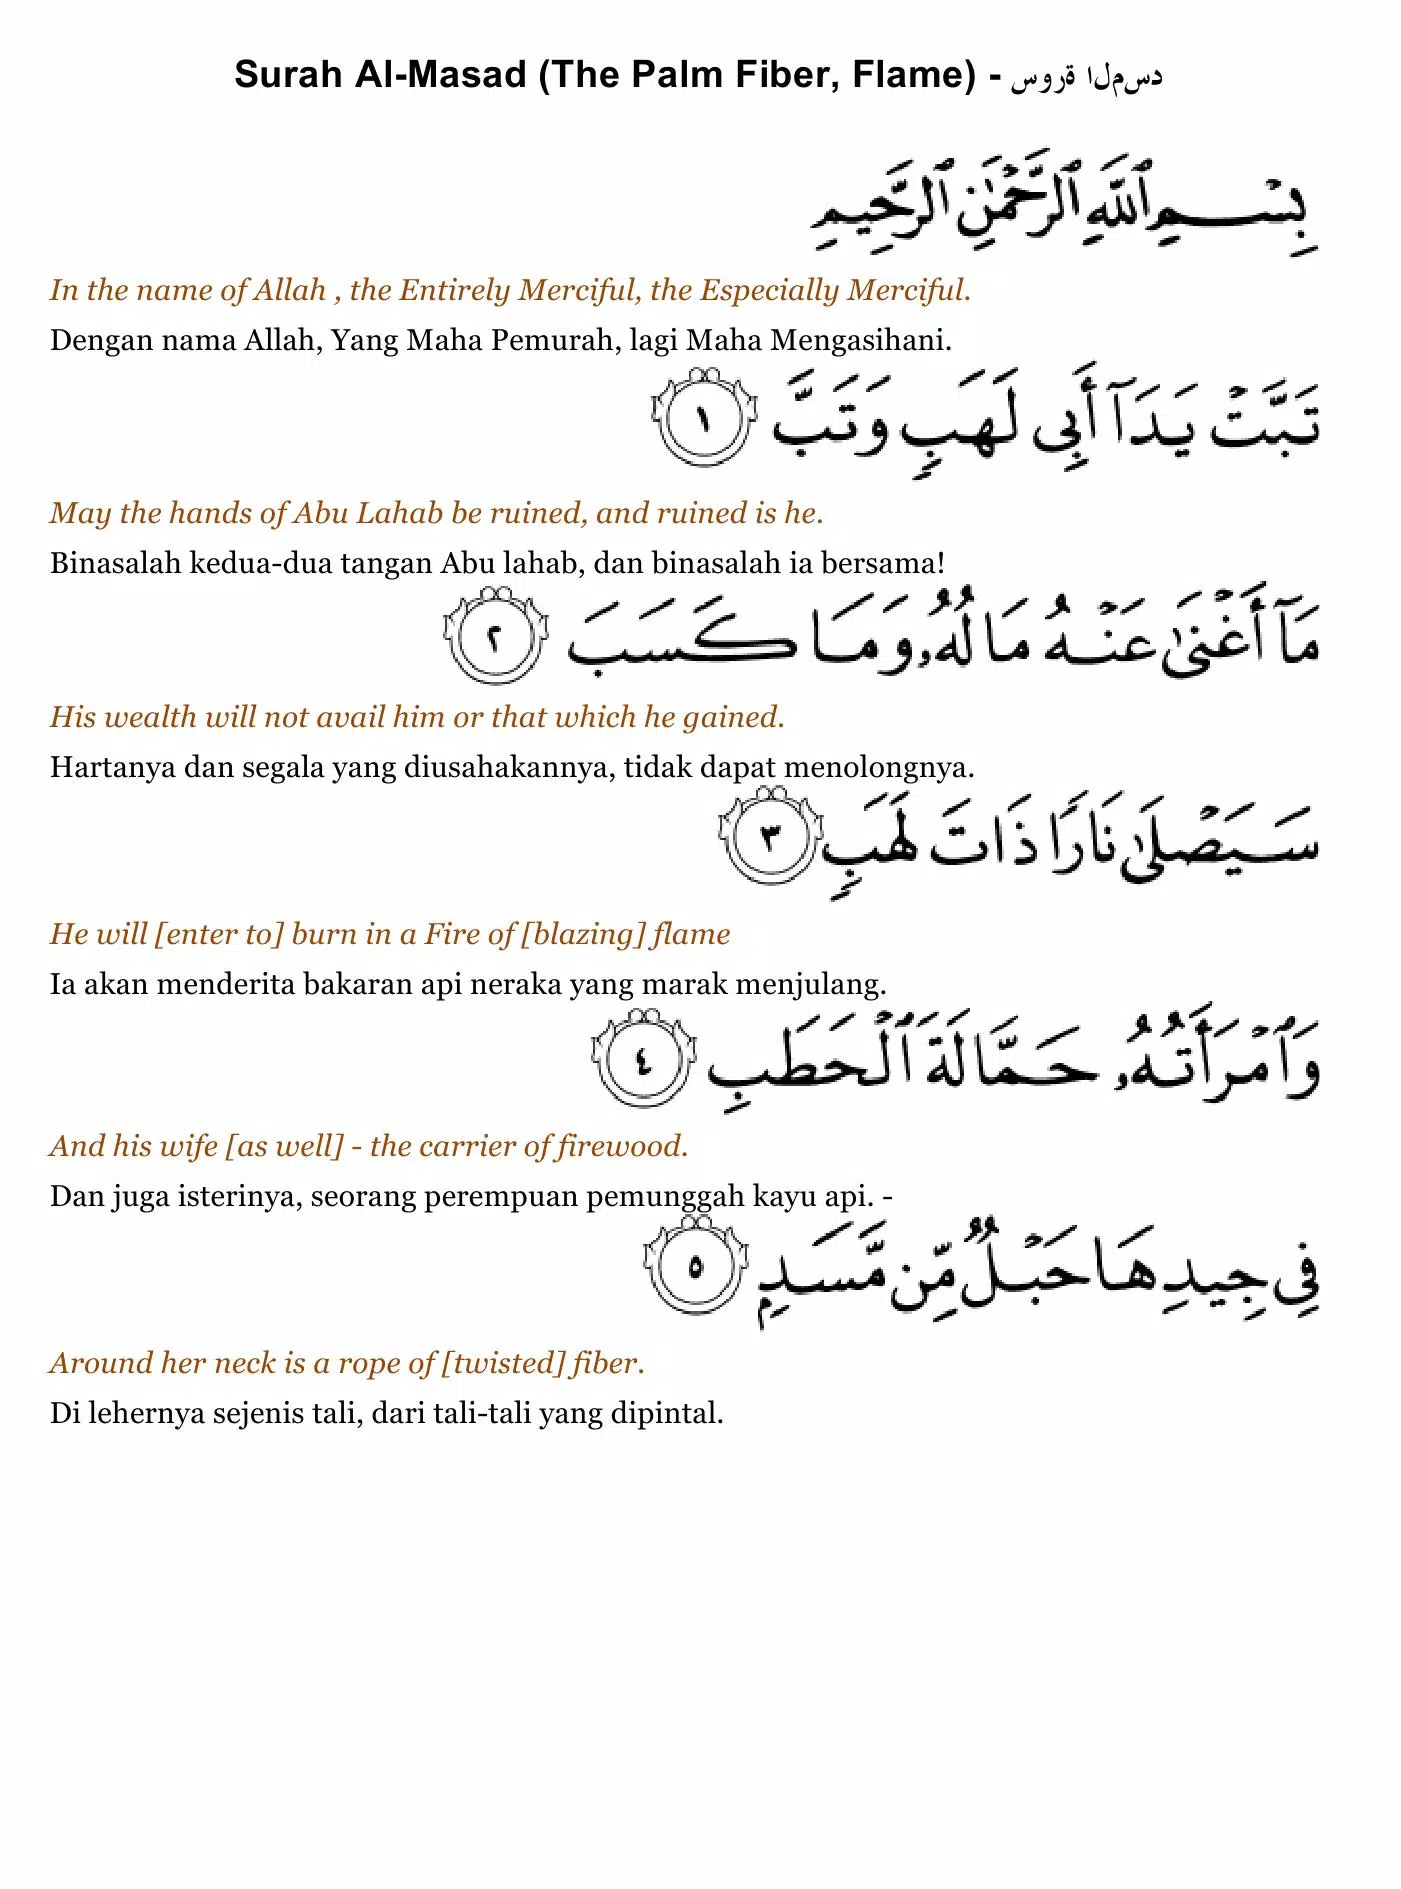 Surah Al-Masad (The Palm Fiber, Flame) - سورة المسد
بِسْمِ ٱللَّهِ ٱلرَّحْمَٰنِ ٱلرَّحِيمِ
In the name of Allah , the Entirely Merciful, the Especially Merciful.
Dengan nama Allah, Yang Maha Pemurah, lagi Maha Mengasihani.
تَبَّتْ يَدَآ أَبِى لَهَبٍ وَتَبَّ ١
May the hands of Abu Lahab be ruined, and ruined is he.
Binasalah kedua-dua tangan Abu lahab, dan binasalah ia bersama!
مَآ أَغْنَىٰ عَنْهُ مَالُهُۥ وَمَا كَسَبَ ٢
His wealth will not avail him or that which he gained.
Hartanya dan segala yang diusahakannya, tidak dapat menolongnya.
سَيَصْلَىٰ نَارًا ذَاتَ لَهَبٍ ٣
He will [enter to] burn in a Fire of [blazing] flame
Ia akan menderita bakaran api neraka yang marak menjulang.
وَٱمْرَأَتُهُۥ حَمَّالَةَ ٱلْحَطَبِ ٤
And his wife [as well] - the carrier of firewood.
Dan juga isterinya, seorang perempuan pemunggah kayu api. -
فِى جِيدِهَا حَبْلٌ مِّن مَّسَدٍۭ ٥
Around her neck is a rope of [twisted] fiber.
Di lehernya sejenis tali, dari tali-tali yang dipintal.